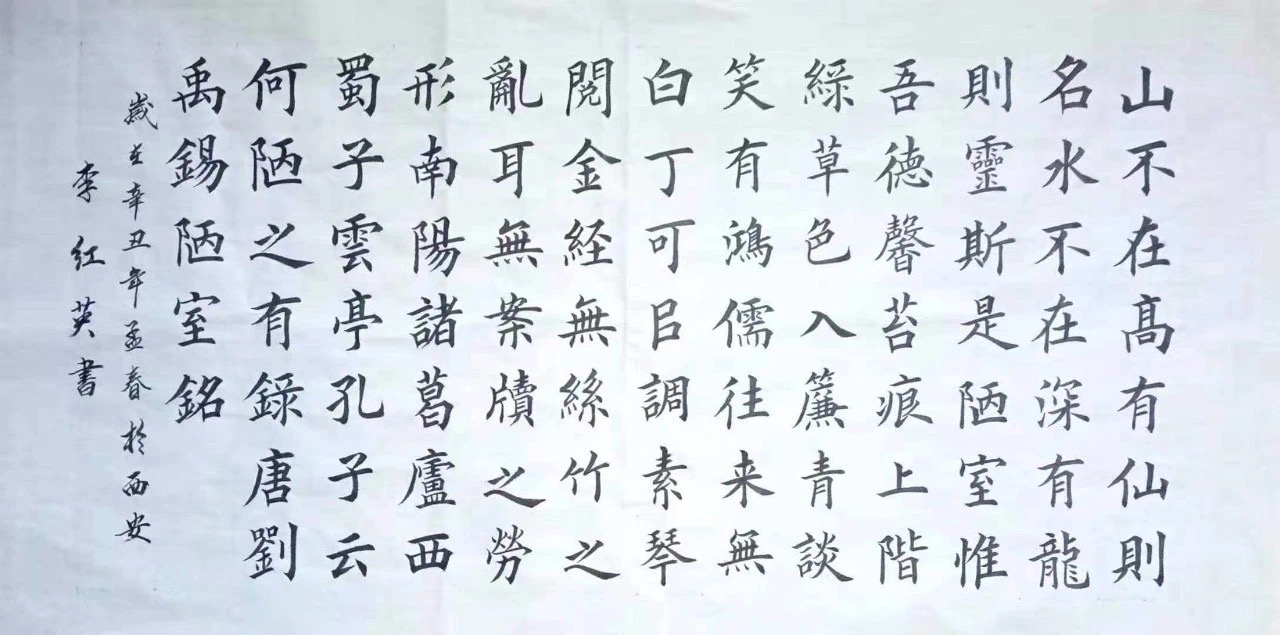 山不在髙有仙則
名水不在深有龍
則靈斯是陋室惟
吾德馨苔痕上階
綠草色入簾青談
笑有鴻儒往来無
白丁可㠯調素琴
閱金経無絲竹之
亂耳無案牘之勞
形南陽諸葛廬西
蜀子雲亭孔子云
何陋之有錄唐劉
禹錫陋室銘
歲在辛丑年孟春於西安
李红英書